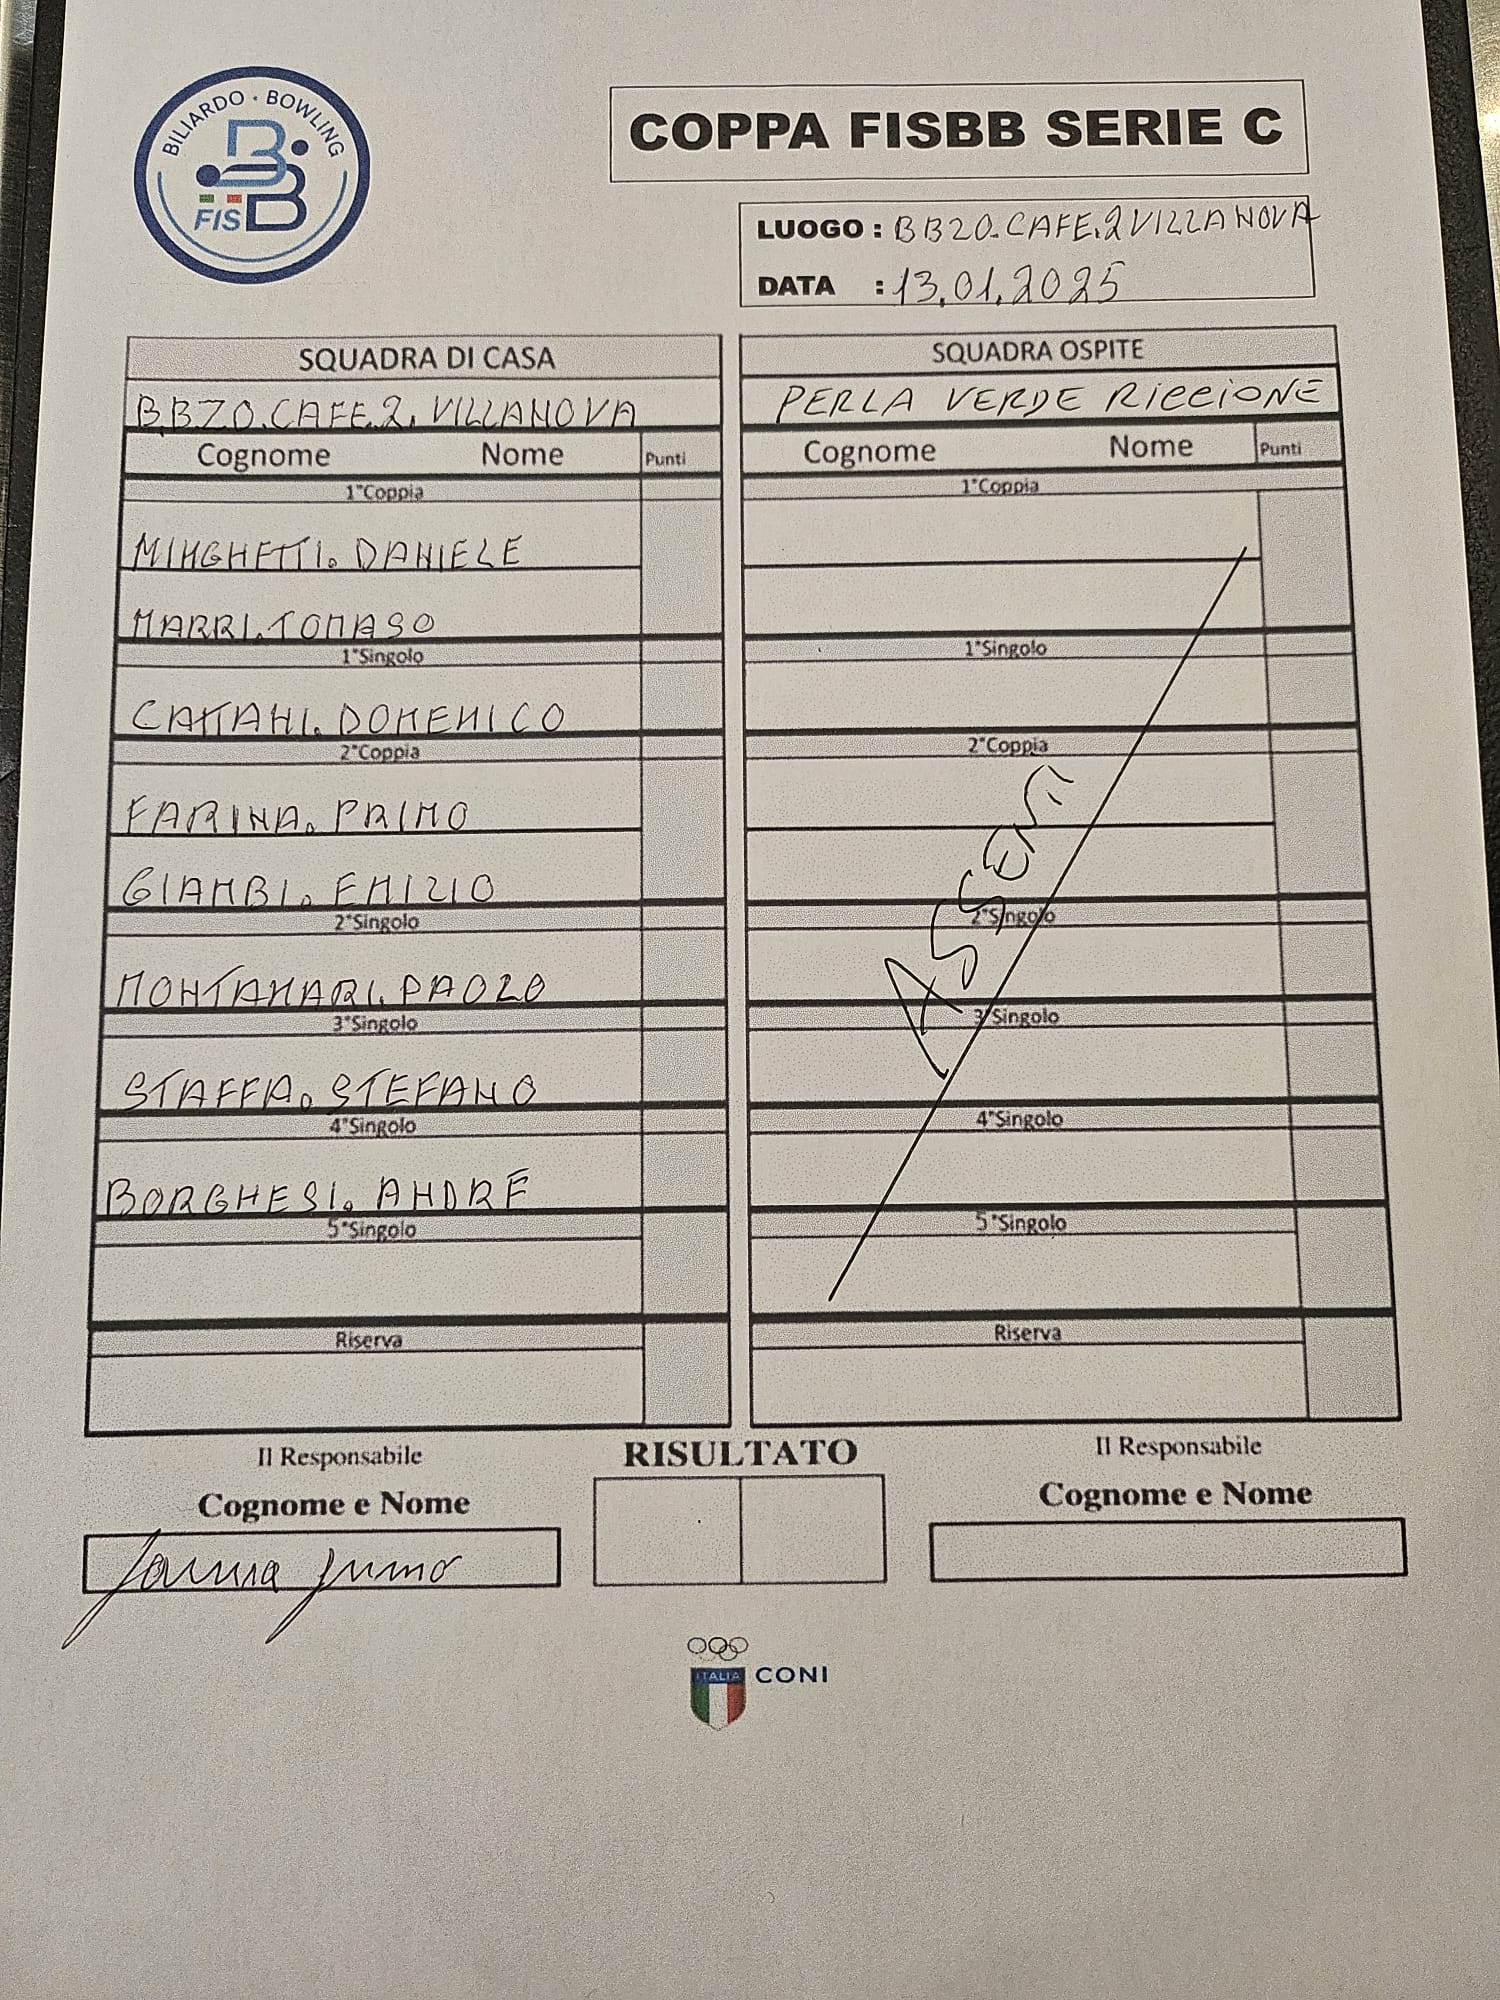 BILIARDO · BOWLING
FISBB
COPPA FISBB SERIE C
LUOGO : BBZO.CAFE.2 VILLANOVA
DATA : 13.01.2025
SQUADRA DI CASA
B.BZO.CAFE.2. VILLANOVA
Cognome Nome Punti
1°Coppia
MINGHETTI. DANIELE
MARRI. TOMASO
1°Singolo
CATTANI. DOMENICO
2°Coppia
FARINA. PRIMO
GIAMBI. EMIZIO
2°Singolo
MONTANARI. PAOLO
3°Singolo
STAFFA. STEFANO
4°Singolo
BORGHESI. ANDRE
5°Singolo
Riserva
SQUADRA OSPITE
PERLA VERDE RICCIONE
Cognome Nome Punti
1°Coppia
1°Singolo
2°Coppia
ASSENTI
2°Singolo
3°Singolo
4°Singolo
5°Singolo
Riserva
Il Responsabile
Cognome e Nome
Farina Primo
RISULTATO
Il Responsabile
Cognome e Nome
ITALIA CONI